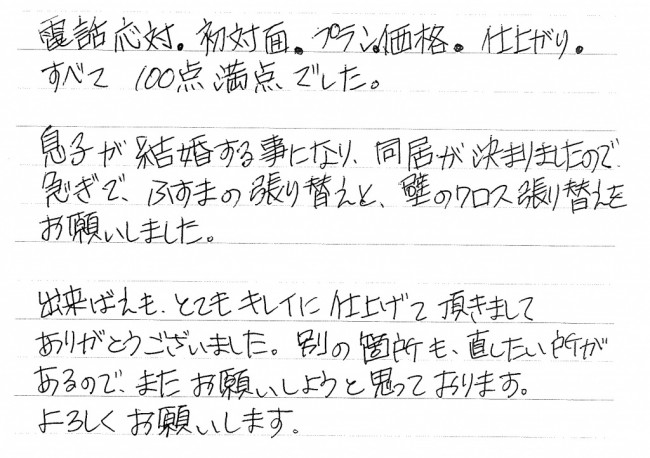 電話応対。初対面。プラン。価格。仕上がり。
すべて 100点満点でした。
息子が結婚する事になり、同居が決まりましたので
急ぎで、ふすまの張り替えと、壁のクロス張り替えを
お願いしました。
出来ばえも、とてもキレイに仕上げて頂きまして
ありがとうございました。別の箇所も、直したい所が
あるので、またお願いしようと思っております。
よろしくお願いします。